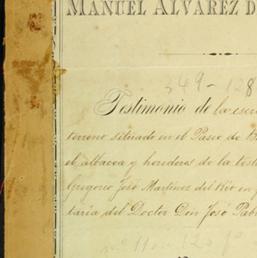 MANUEL ALVAREZ D
349-128
Testimonio de la escri
terreno situado en el Paseo de B
el albacea y herederos de la test
Gregorio José Martinez del Rio en f
taria del Doctor Don José Pab